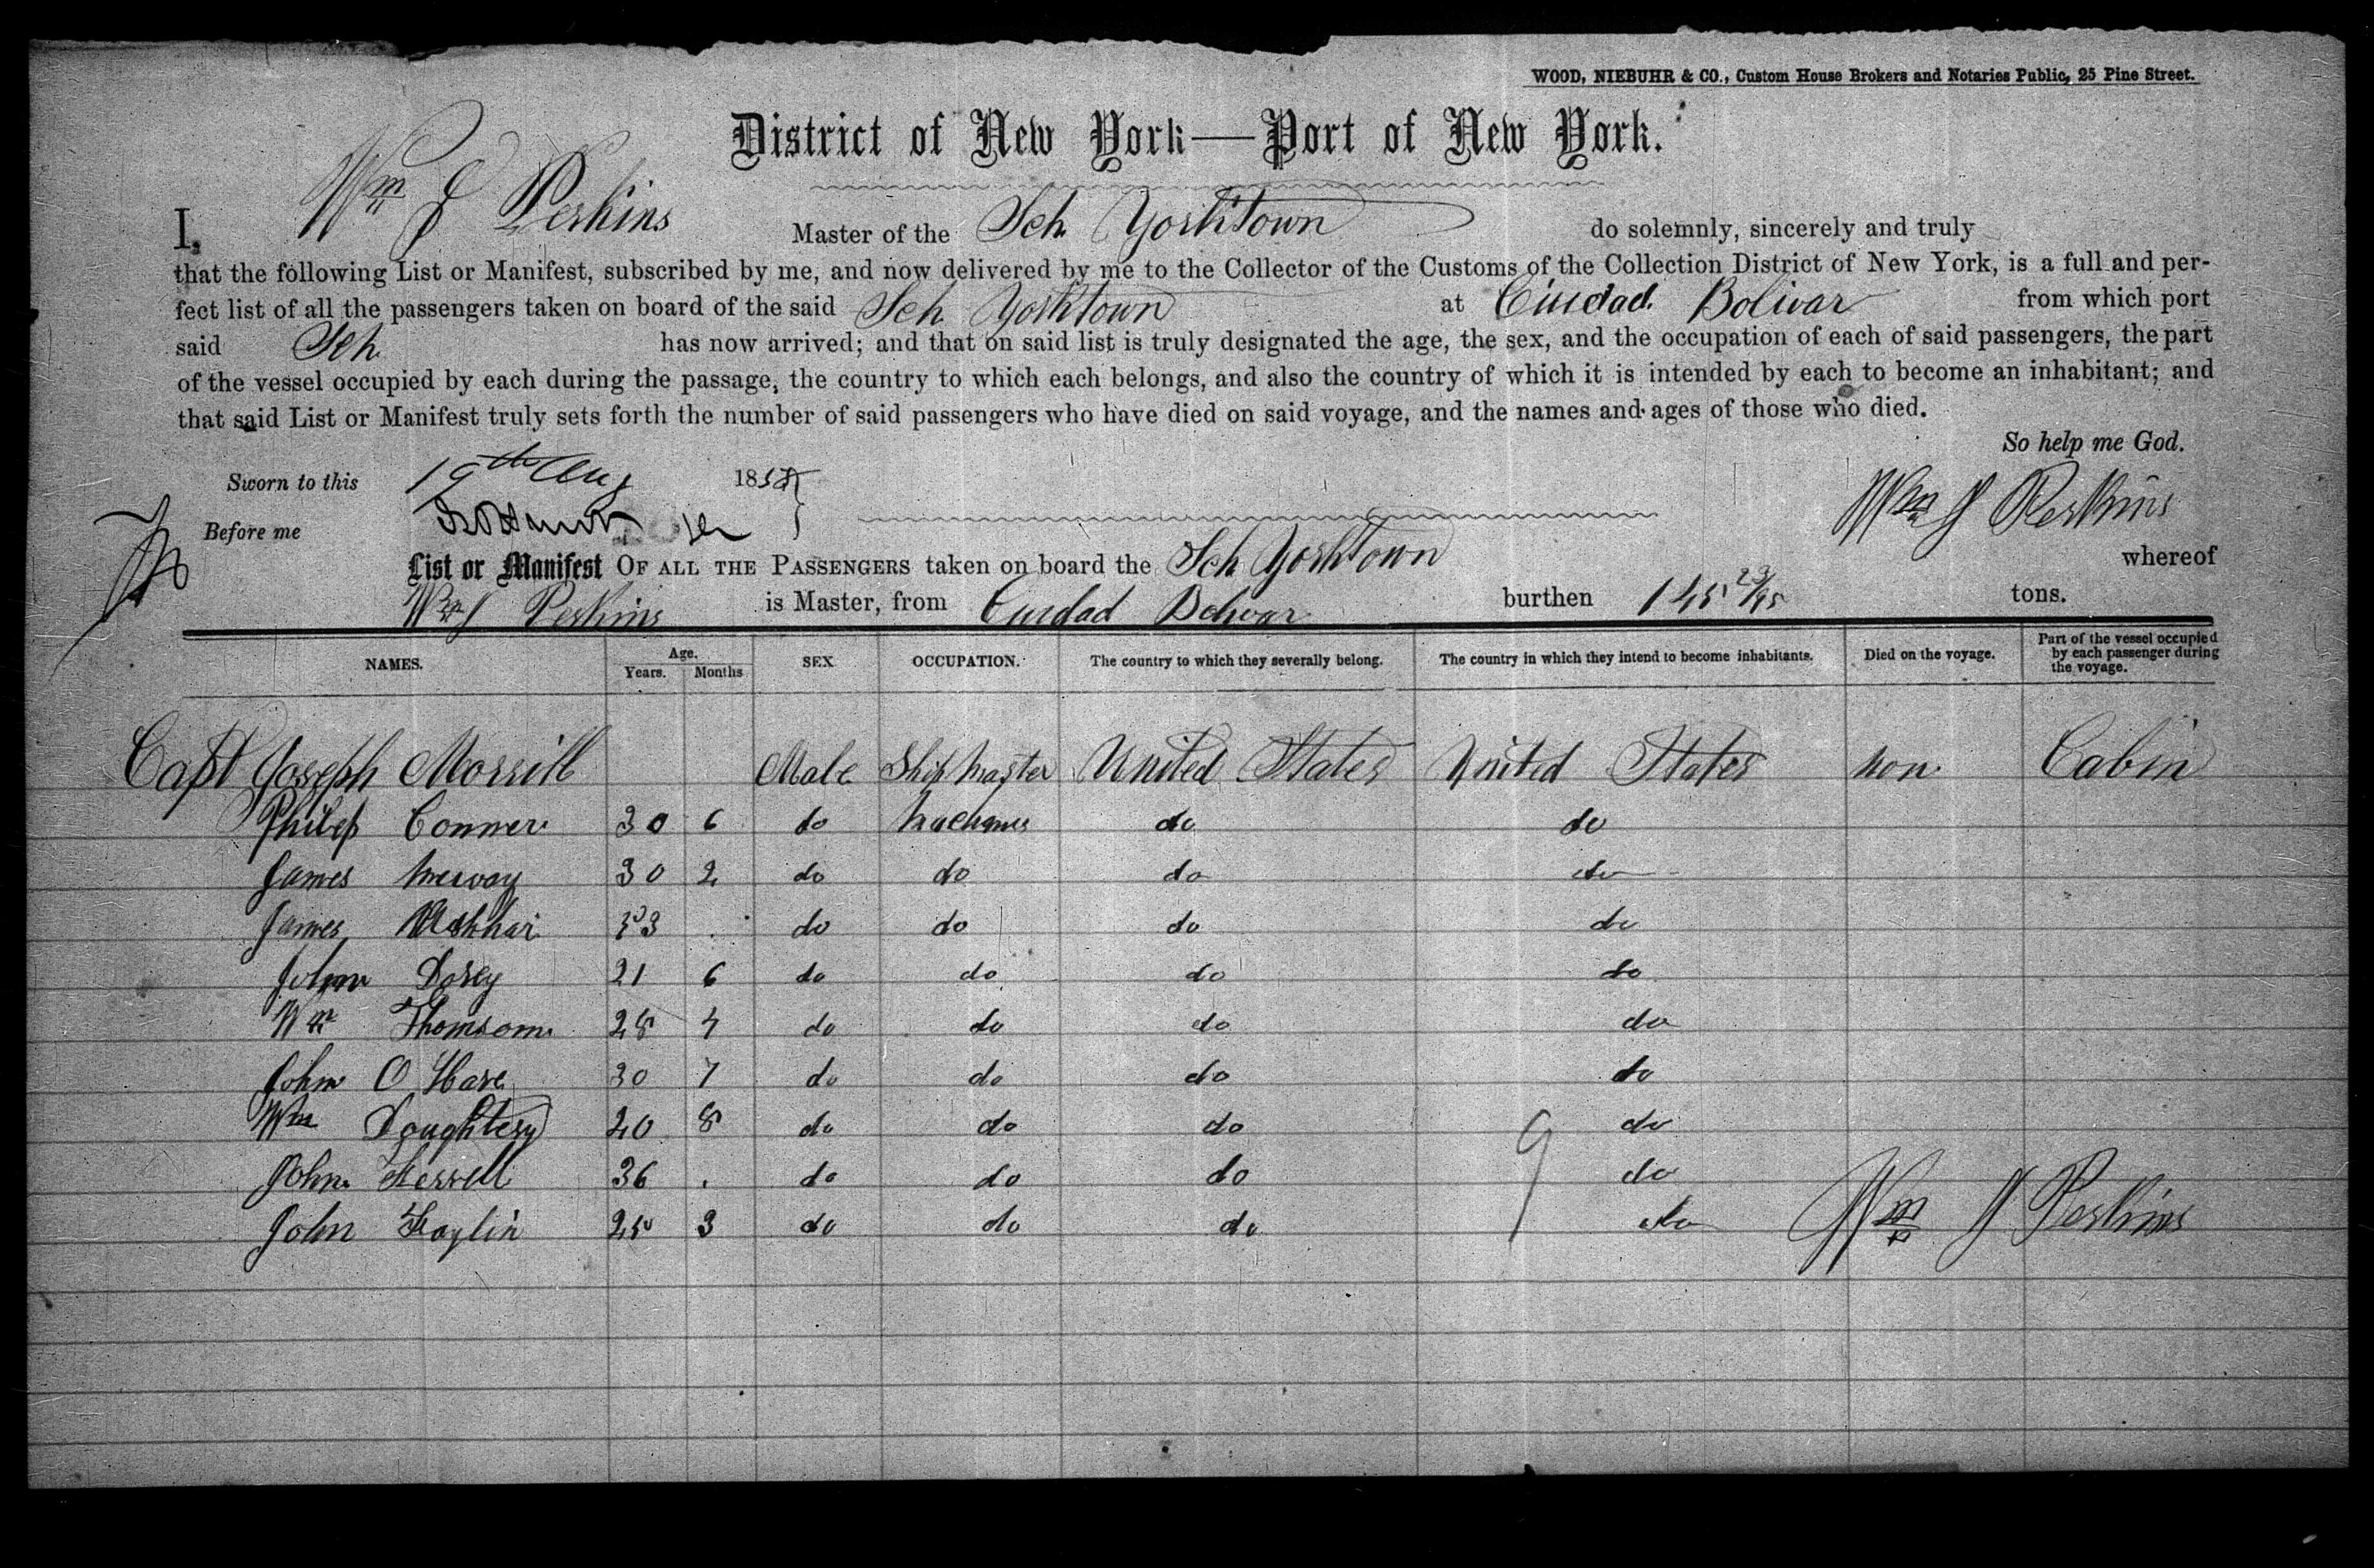 WOOD, NIEBUHR & CO., Custom House Brokers and Notaries Public, 25 Pine Street.
District of New York—Port of New York.
I, Wm J Perkins Master of the Sch Yorktown do solemnly, sincerely and truly
that the following List or Manifest, subscribed by me, and now delivered by me to the Collector of the Customs of the Collection District of New York, is a full and per-
fect list of all the passengers taken on board of the said Sch Yorktown at Ciudad Bolivar from which port
said Sch has now arrived; and that on said list is truly designated the age, the sex, and the occupation of each of said passengers, the part
of the vessel occupied by each during the passage, the country to which each belongs, and also the country of which it is intended by each to become an inhabitant; and
that said List or Manifest truly sets forth the number of said passengers who have died on said voyage, and the names and ages of those who died.
So help me God.
Sworn to this 19th Aug 185
Wm J Perkins
Before me
List or Manifest OF ALL THE PASSENGERS taken on board the Sch Yorktown whereof
Wm J Perkins is Master, from Ciudad Bolivar burthen 145 23/95 tons.
NAMES. Age. Years. Months SEX. OCCUPATION. The country to which they severally belong. The country in which they intend to become inhabitants. Died on the voyage. Part of the vessel occupied by each passenger during the voyage.
Capt Joseph Morrill Male Ship Master United States United States non Cabin
Philip Conner 30 6 do do do
James 30 2 do do do do
James 33 . do do do do
John Dorey 21 6 do do do do
Wm Thomsom 28 4 do do do do
John O Hare 30 7 do do do do
Wm Doughtery 20 8 do do do do
John Kerrell 36 . do do do 9 do
John 25 3 do do do do Wm J Perkins